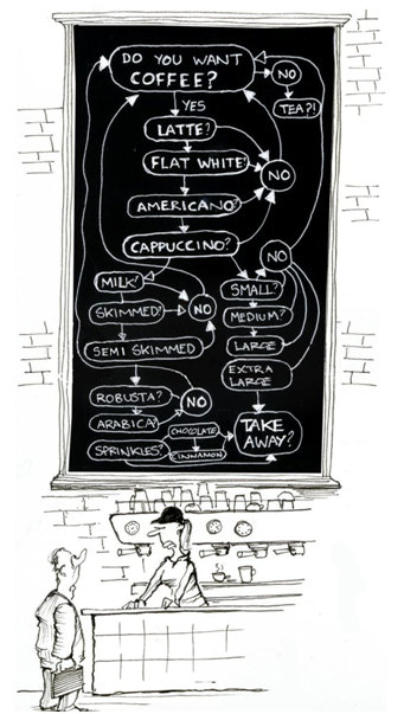 DO YOU WANT
COFFEE?
NO
TEA?!
YES
LATTE?
FLAT WHITE?
NO
AMERICANO?
CAPPUCCINO?
NO
MILK?
SMALL?
SKIMMED?
NO
MEDIUM?
SEMI SKIMMED
LARGE
EXTRA
LARGE
ROBUSTA?
NO
ARABICA?
CHOCOLATE
TAKE
AWAY?
SPRINKLES?
CINNAMON